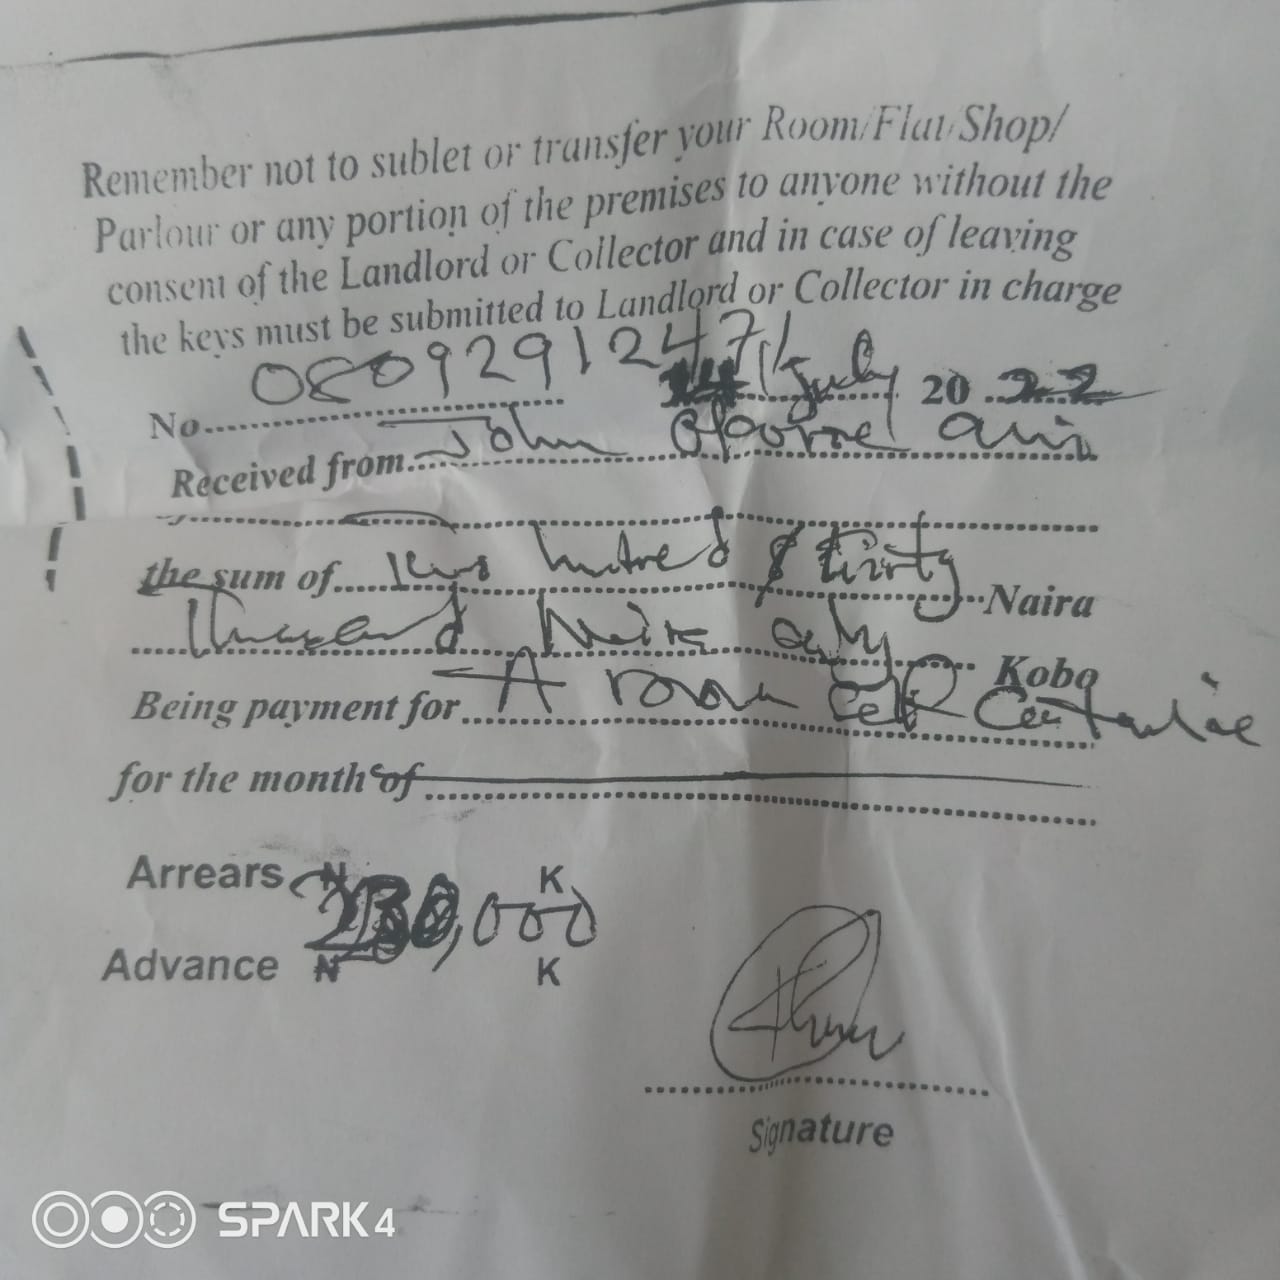 Remember not to sublet or transfer your Room/Flat/Shop/
Parlour or any portion of the premises to anyone without the
consent of the Landlord or Collector and in case of leaving
the keys must be submitted to Landlord or Collector in charge
No. 08092912471 July 2022
Received from John
the sum of hundred & thirty Naira
Thousand Naira only Kobo
Being payment for A room self Contain
for the month of
Arrears N K
230,000
Advance N K
Signature
SPARK 4